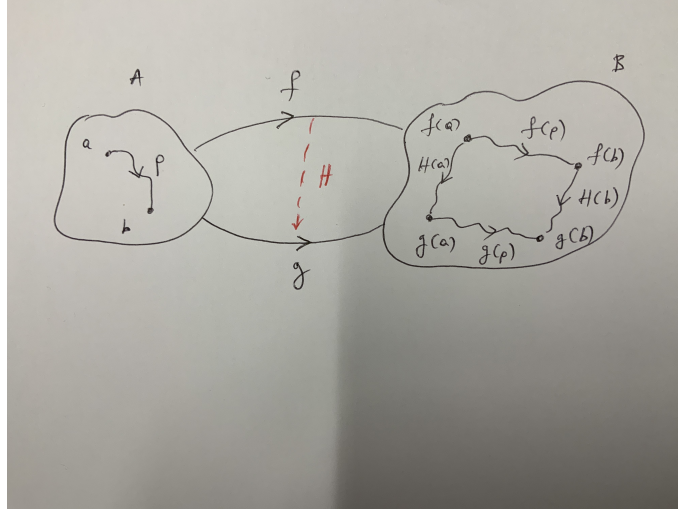 A
f
B
a
p
b
H
g
f(a)
f(p)
f(b)
H(a)
H(b)
g(a)
g(p)
g(b)